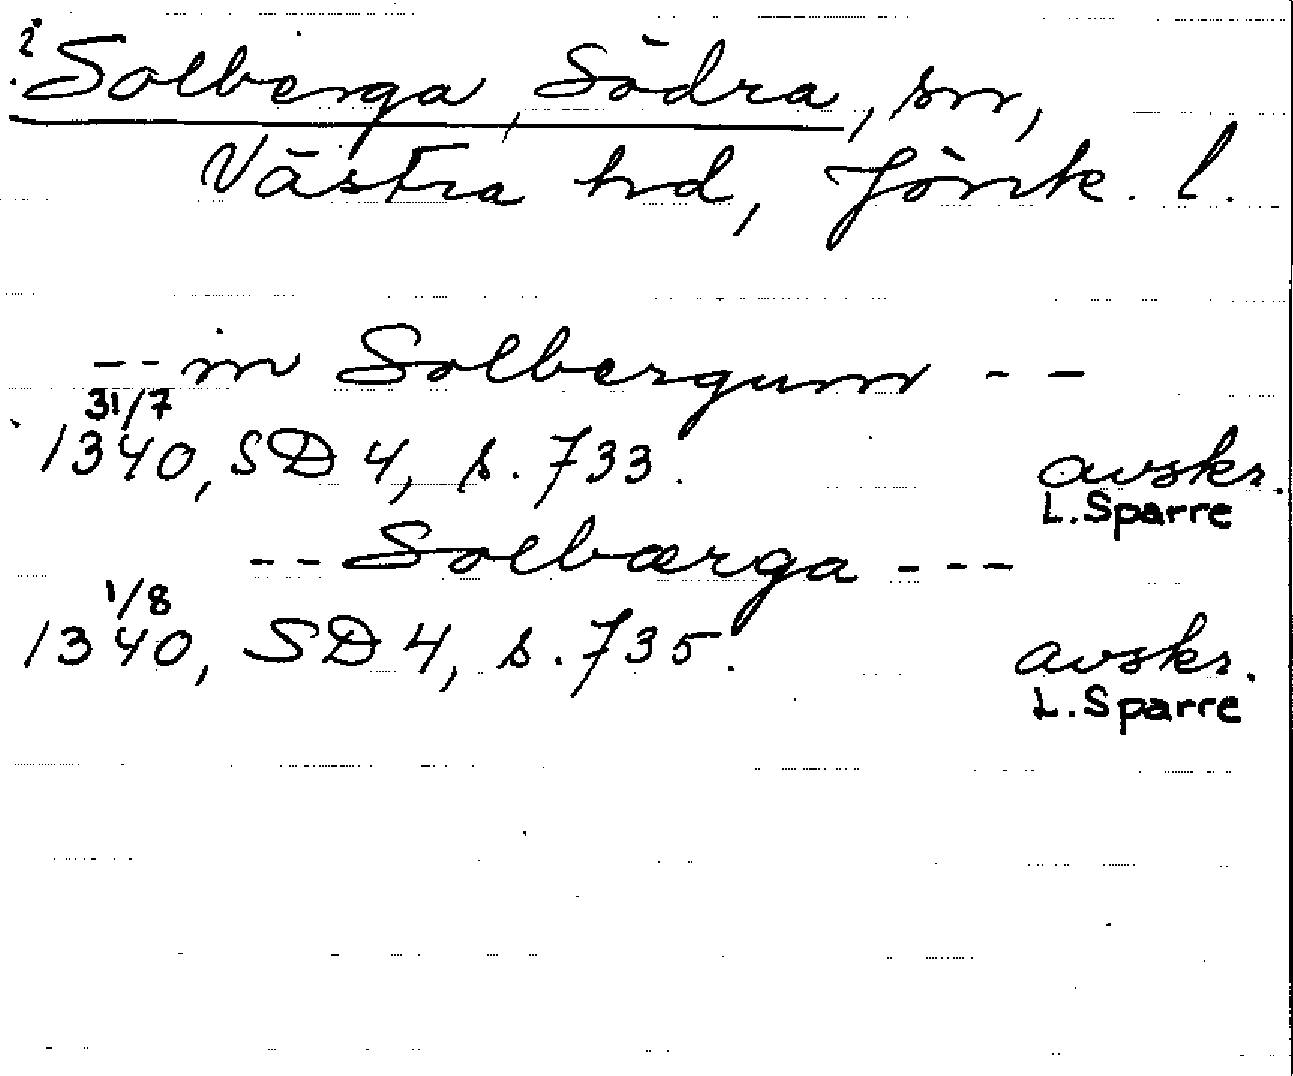 ? Solberga, Södra, sn,
Västra hd, Jönk. l.
-- in Solbergum --
31/7
1340, SD 4, s. 733. avskr.
L. Sparre
-- Solbærga ---
1/8
1340, SD 4, s. 735. avskr.
L. Sparre